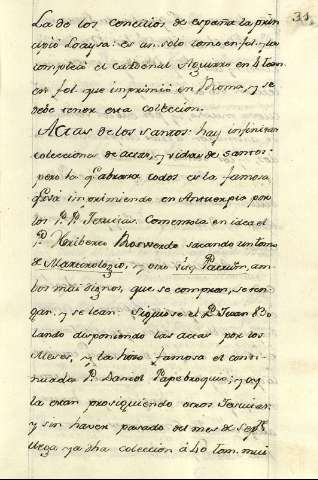 31
La de los concilios de españa la prin
cipió Loaysa: es un solo tomo en fol. y la
completó el cardenal Aguirre en 4 tom.
en fol. que imprimió en Roma, y se
debe tener esta coleccion.
Actas de los santos: hay infinitas
colecciones de actas, y vidas de santos:
pero la q.e abraza todos es la famosa
q.e se va imprimiendo en Antuerpia por
los P.P. Jesuitas. Comenzola en idea el
P. Heriberto Roswerdo sacando un tomo
de Martirologio, y otro Vitę Patrum, am
bos mui dignos, que se compren, se ten
gan, y se lean. Siguiose el P. Juan Bo
lando disponiendo las actas por los
Meses, y la hizo famosa el conti
nuador P. Daniel Papebroquio; y oy
la estan prosiguiendo otros Jesuitas
y sin haver pasado del mes de Sept.e
llega ya dha coleccion á 40 tom. mui